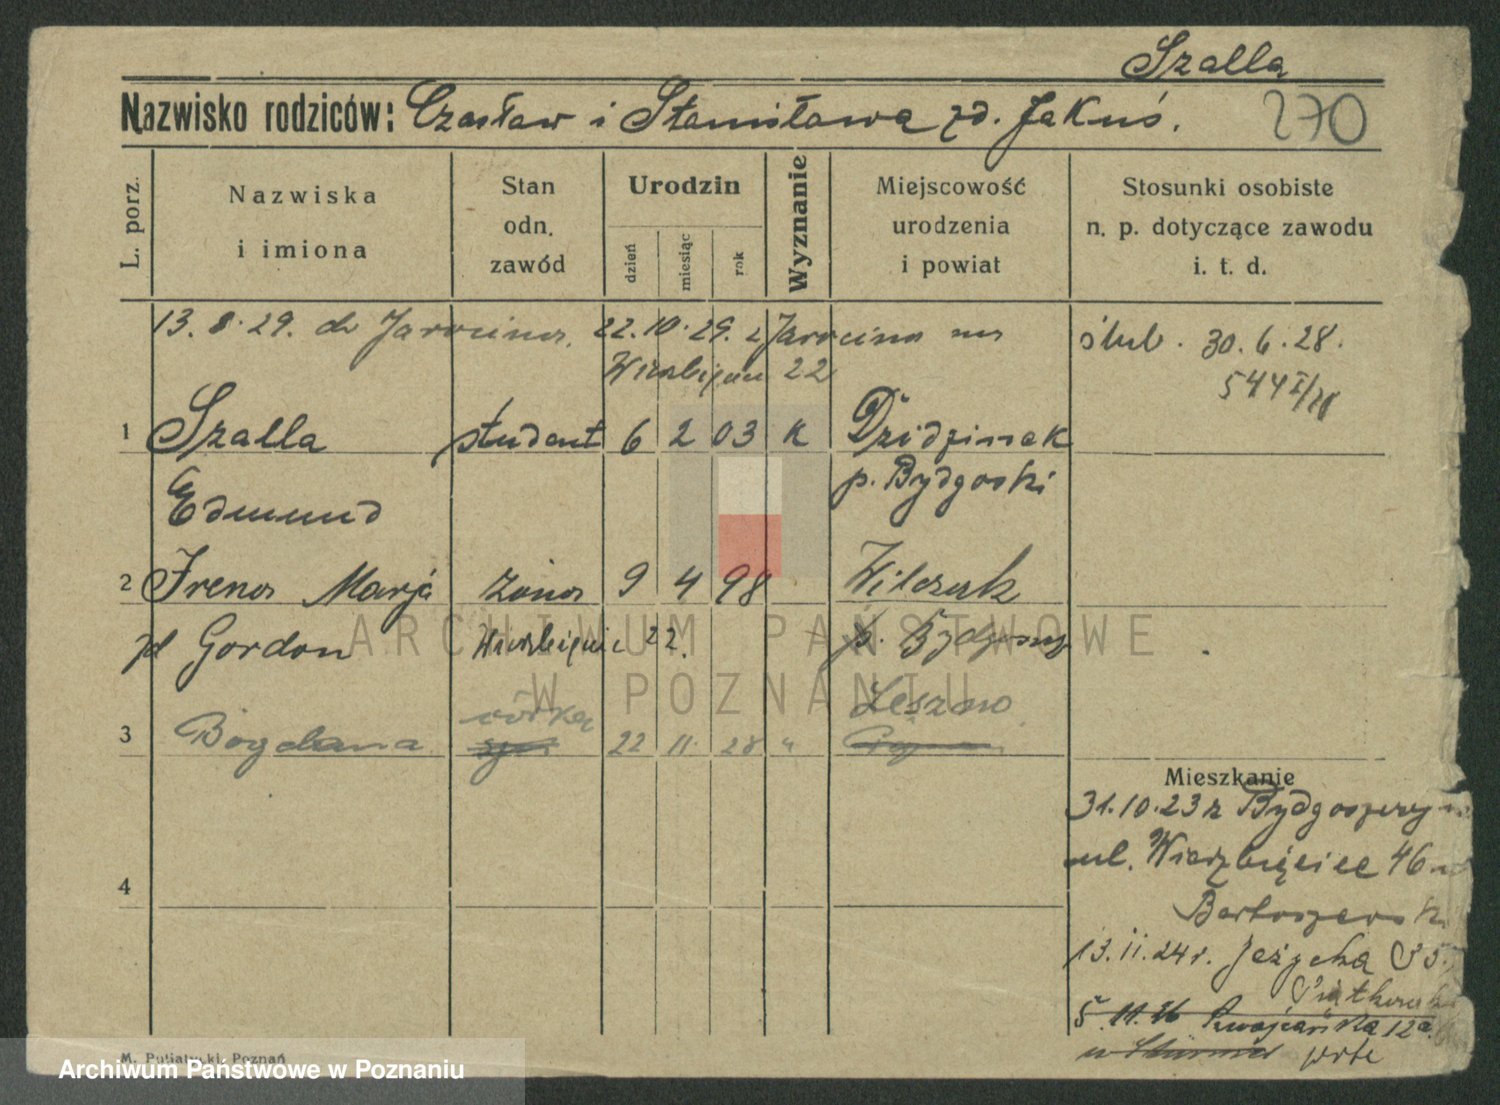 Szalla
Nazwisko rodziców: Czesław i Stanisława zd. Jakuś.
270
L. porz.
Nazwiska
i imiona
Stan
odn.
zawód
Urodzin
dzień
miesiąc
rok
Wyznanie
Miejscowość
urodzenia
i powiat
Stosunki osobiste
n. p. dotyczące zawodu
i. t. d.
13. 8. 29. do Jarocina. 22.10.29. z Jarocina na
Wierzbięcice 22
ślub. 30. 6. 28.
1 Szalla student 6 2 03 k
p. Bydgoski
Edmund
2 Irena Marja żona 9 4 98 Wilczak
zd Gordon Wierzbięcice 22. p. Bydgoszcz
córka Leszno
3 Bogdana 22 11. 28 "
Mieszkanie
31.10.23 z Bydgoszczy
ul. Wierzbięcice 46
13.11.24 r. Jeżycka
5.11.26 12a
4
M. Putiatycki, Poznań
ARCHIWUM PAŃSTWOWE
W POZNANIU
Archiwum Państwowe w Poznaniu